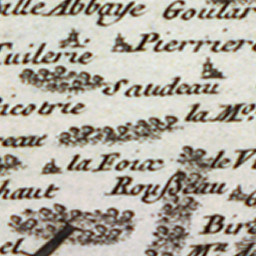 ulle Abbaye Goular
Tuilerie Pierriere
Saudeau
icotrie la Mo.
reau
la Foux le Vi
haut Rousseau
Bir
el M.n